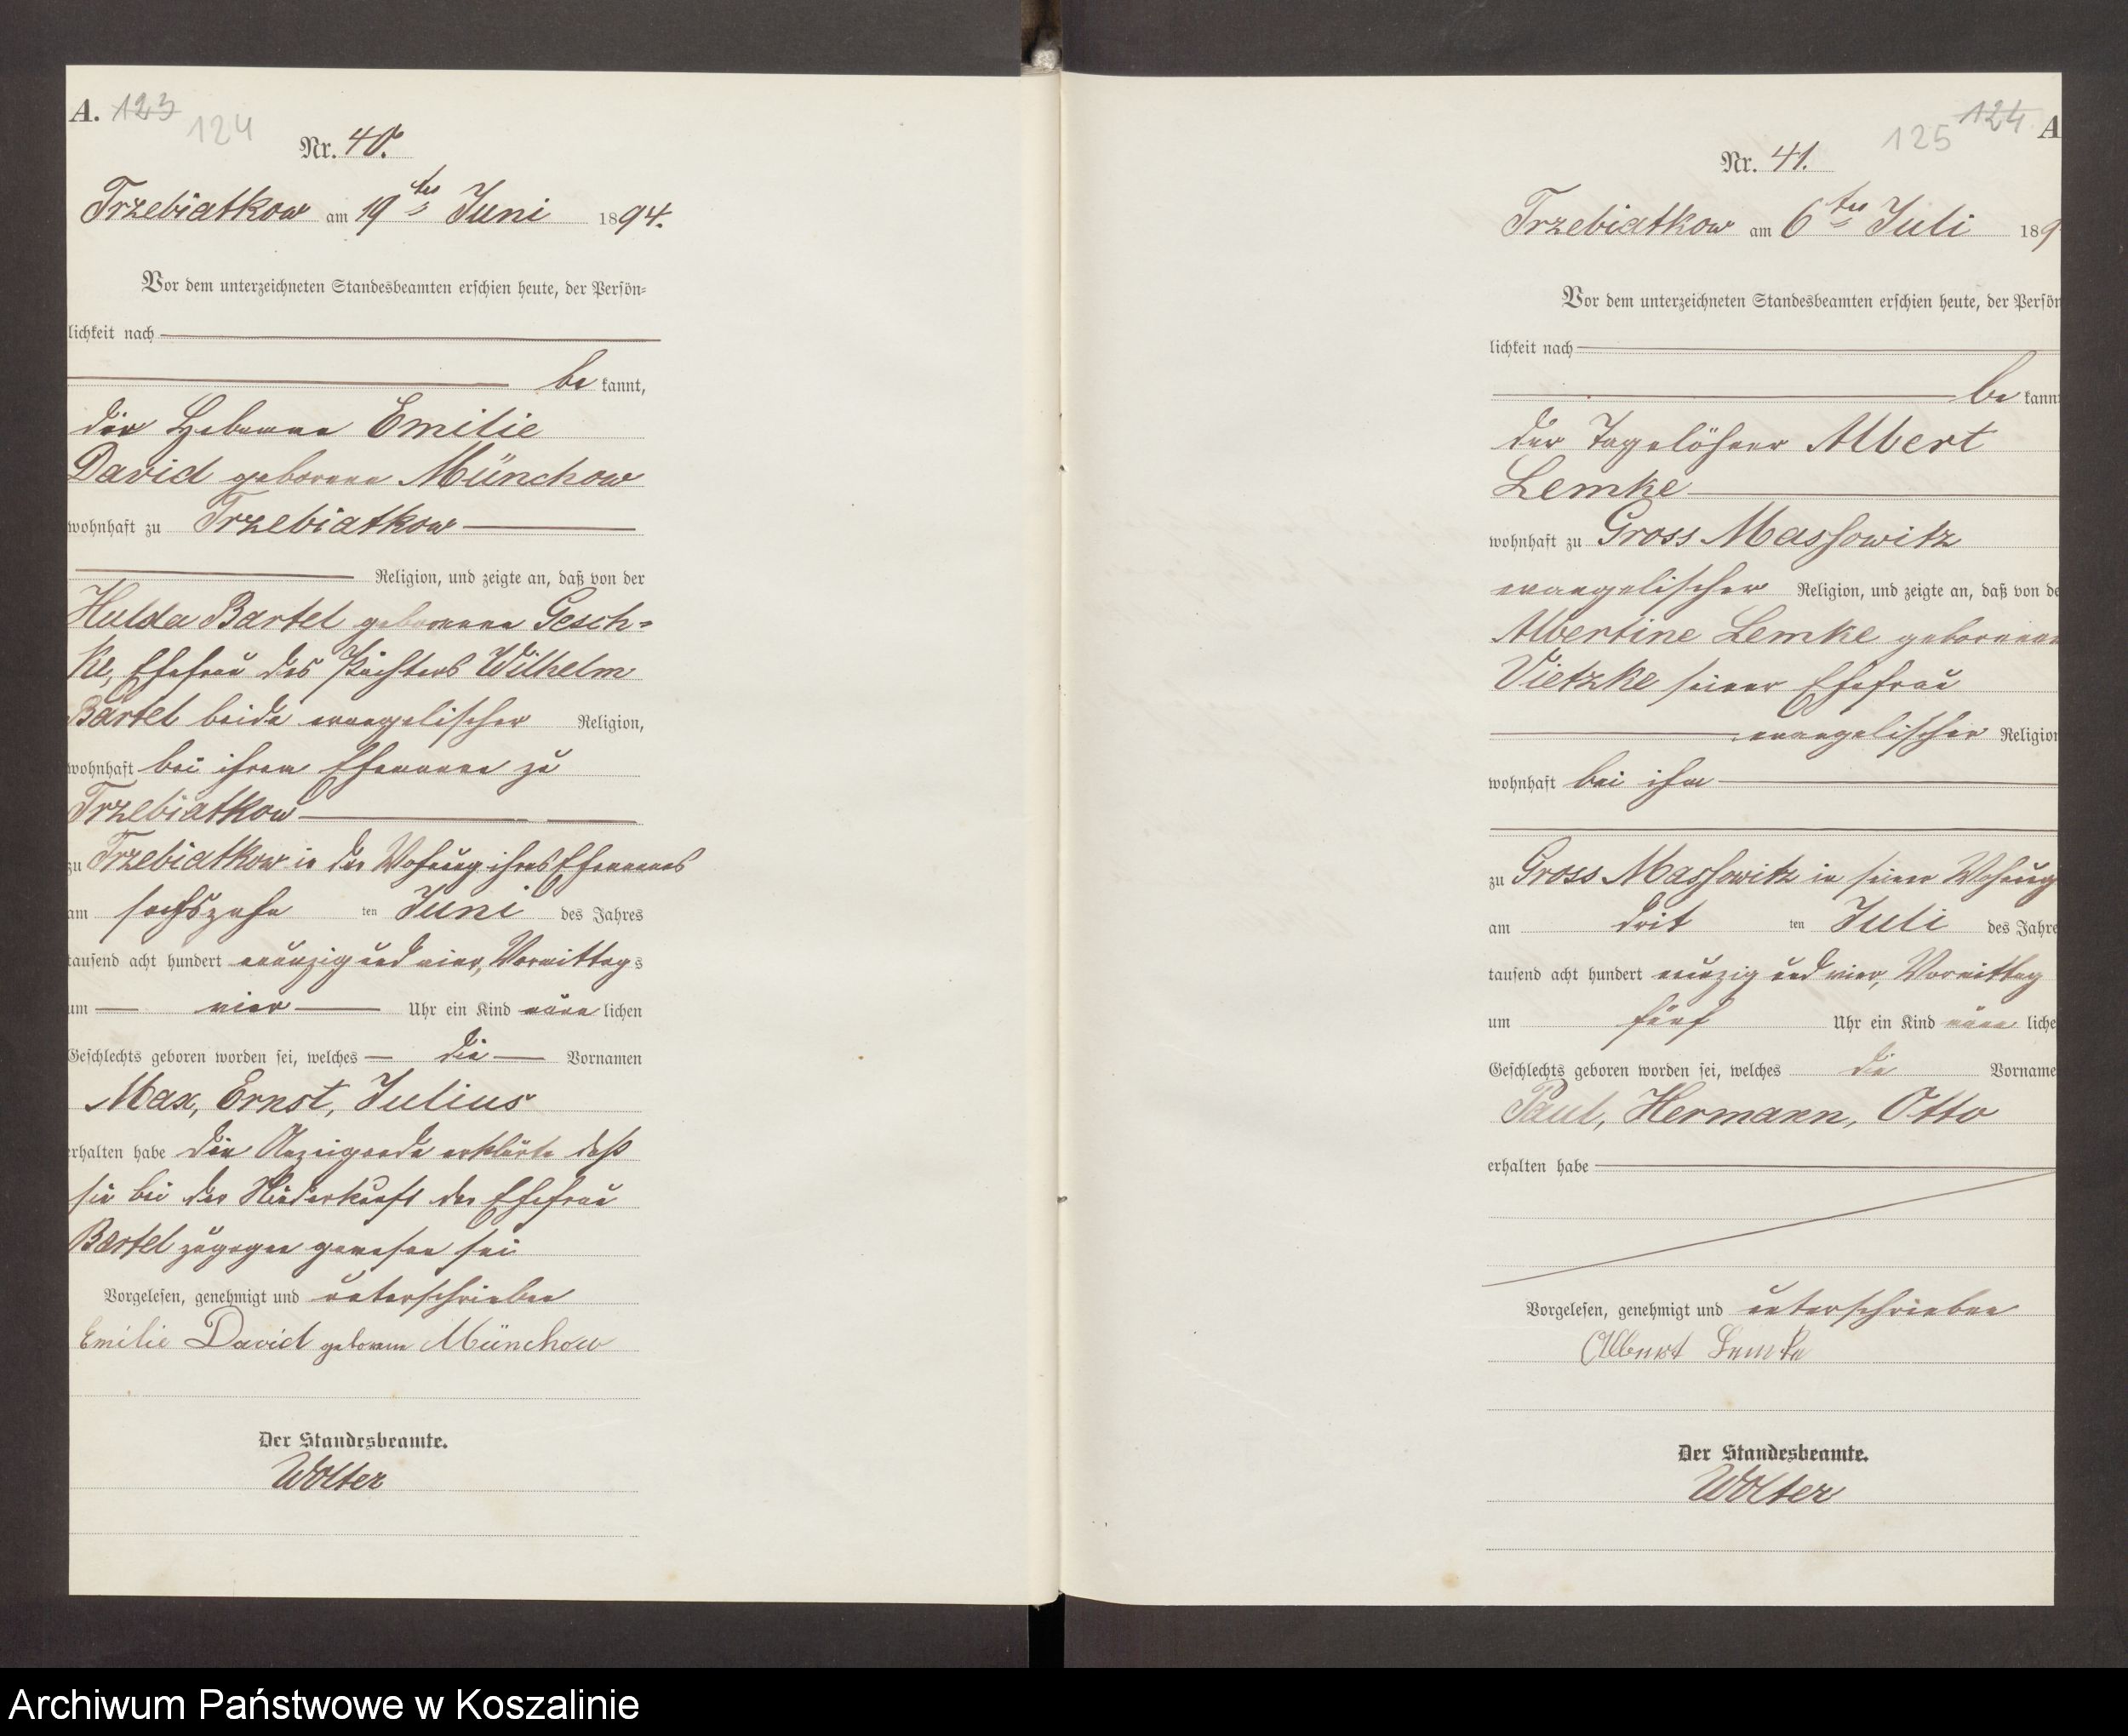 A. 123
124
Nr. 40.
Trzebiatkow am 19ten Juni 1894.
Vor dem unterzeichneten Standesbeamten erschien heute, der Persön=
lichkeit nach
be kannt,
die Hebamme Emilie
David geborene Münchow
wohnhaft zu Trzebiatkow
Religion, und zeigte an, daß von der
Hulda Bartel geborenen Gesch=
ke, Ehefrau des Pächters Wilhelm
Bartel beide evangelischer Religion,
wohnhaft bei ihrem Ehemanne zu
Trzebiatkow
zu Trzebiatkow in der Wohnung ihres Ehemannes
am sechszehn ten Juni des Jahres
tausend acht hundert neunzig und vier, Vormittags
um vier Uhr ein Kind männ lichen
Geschlechts geboren worden sei, welches die Vornamen
Max, Ernst, Julius
erhalten habe die Anzeigende erklärte daß
sie bei der Niederkunft der Ehefrau
Bartel zugegen gewesen sei
Vorgelesen, genehmigt und unterschrieben
Emilie David geborene Münchow
Der Standesbeamte.
Wolter
125 124 A
Nr. 41.
Trzebiatkow am 6ten Juli 189
Vor dem unterzeichneten Standesbeamten erschien heute, der Persön
lichkeit nach
be kannt
der Tagelöhner Albert
Lemke
wohnhaft zu Gross Massowitz
evangelischer Religion, und zeigte an, daß von de
Albertine Lemke geborenen
Vietzke seiner Ehefrau
evangelischer Religion
wohnhaft bei ihm
zu Gross Massowitz in seiner Wohnung
am drit ten Juli des Jahre
tausend acht hundert neunzig und vier, Vormittag
um fünf Uhr ein Kind männ liche
Geschlechts geboren worden sei, welches die Vorname
Paul, Hermann, Otto
erhalten habe
Vorgelesen, genehmigt und unterschrieben
Albert Lemke
Der Standesbeamte.
Wolter
Archiwum Państwowe w Koszalinie